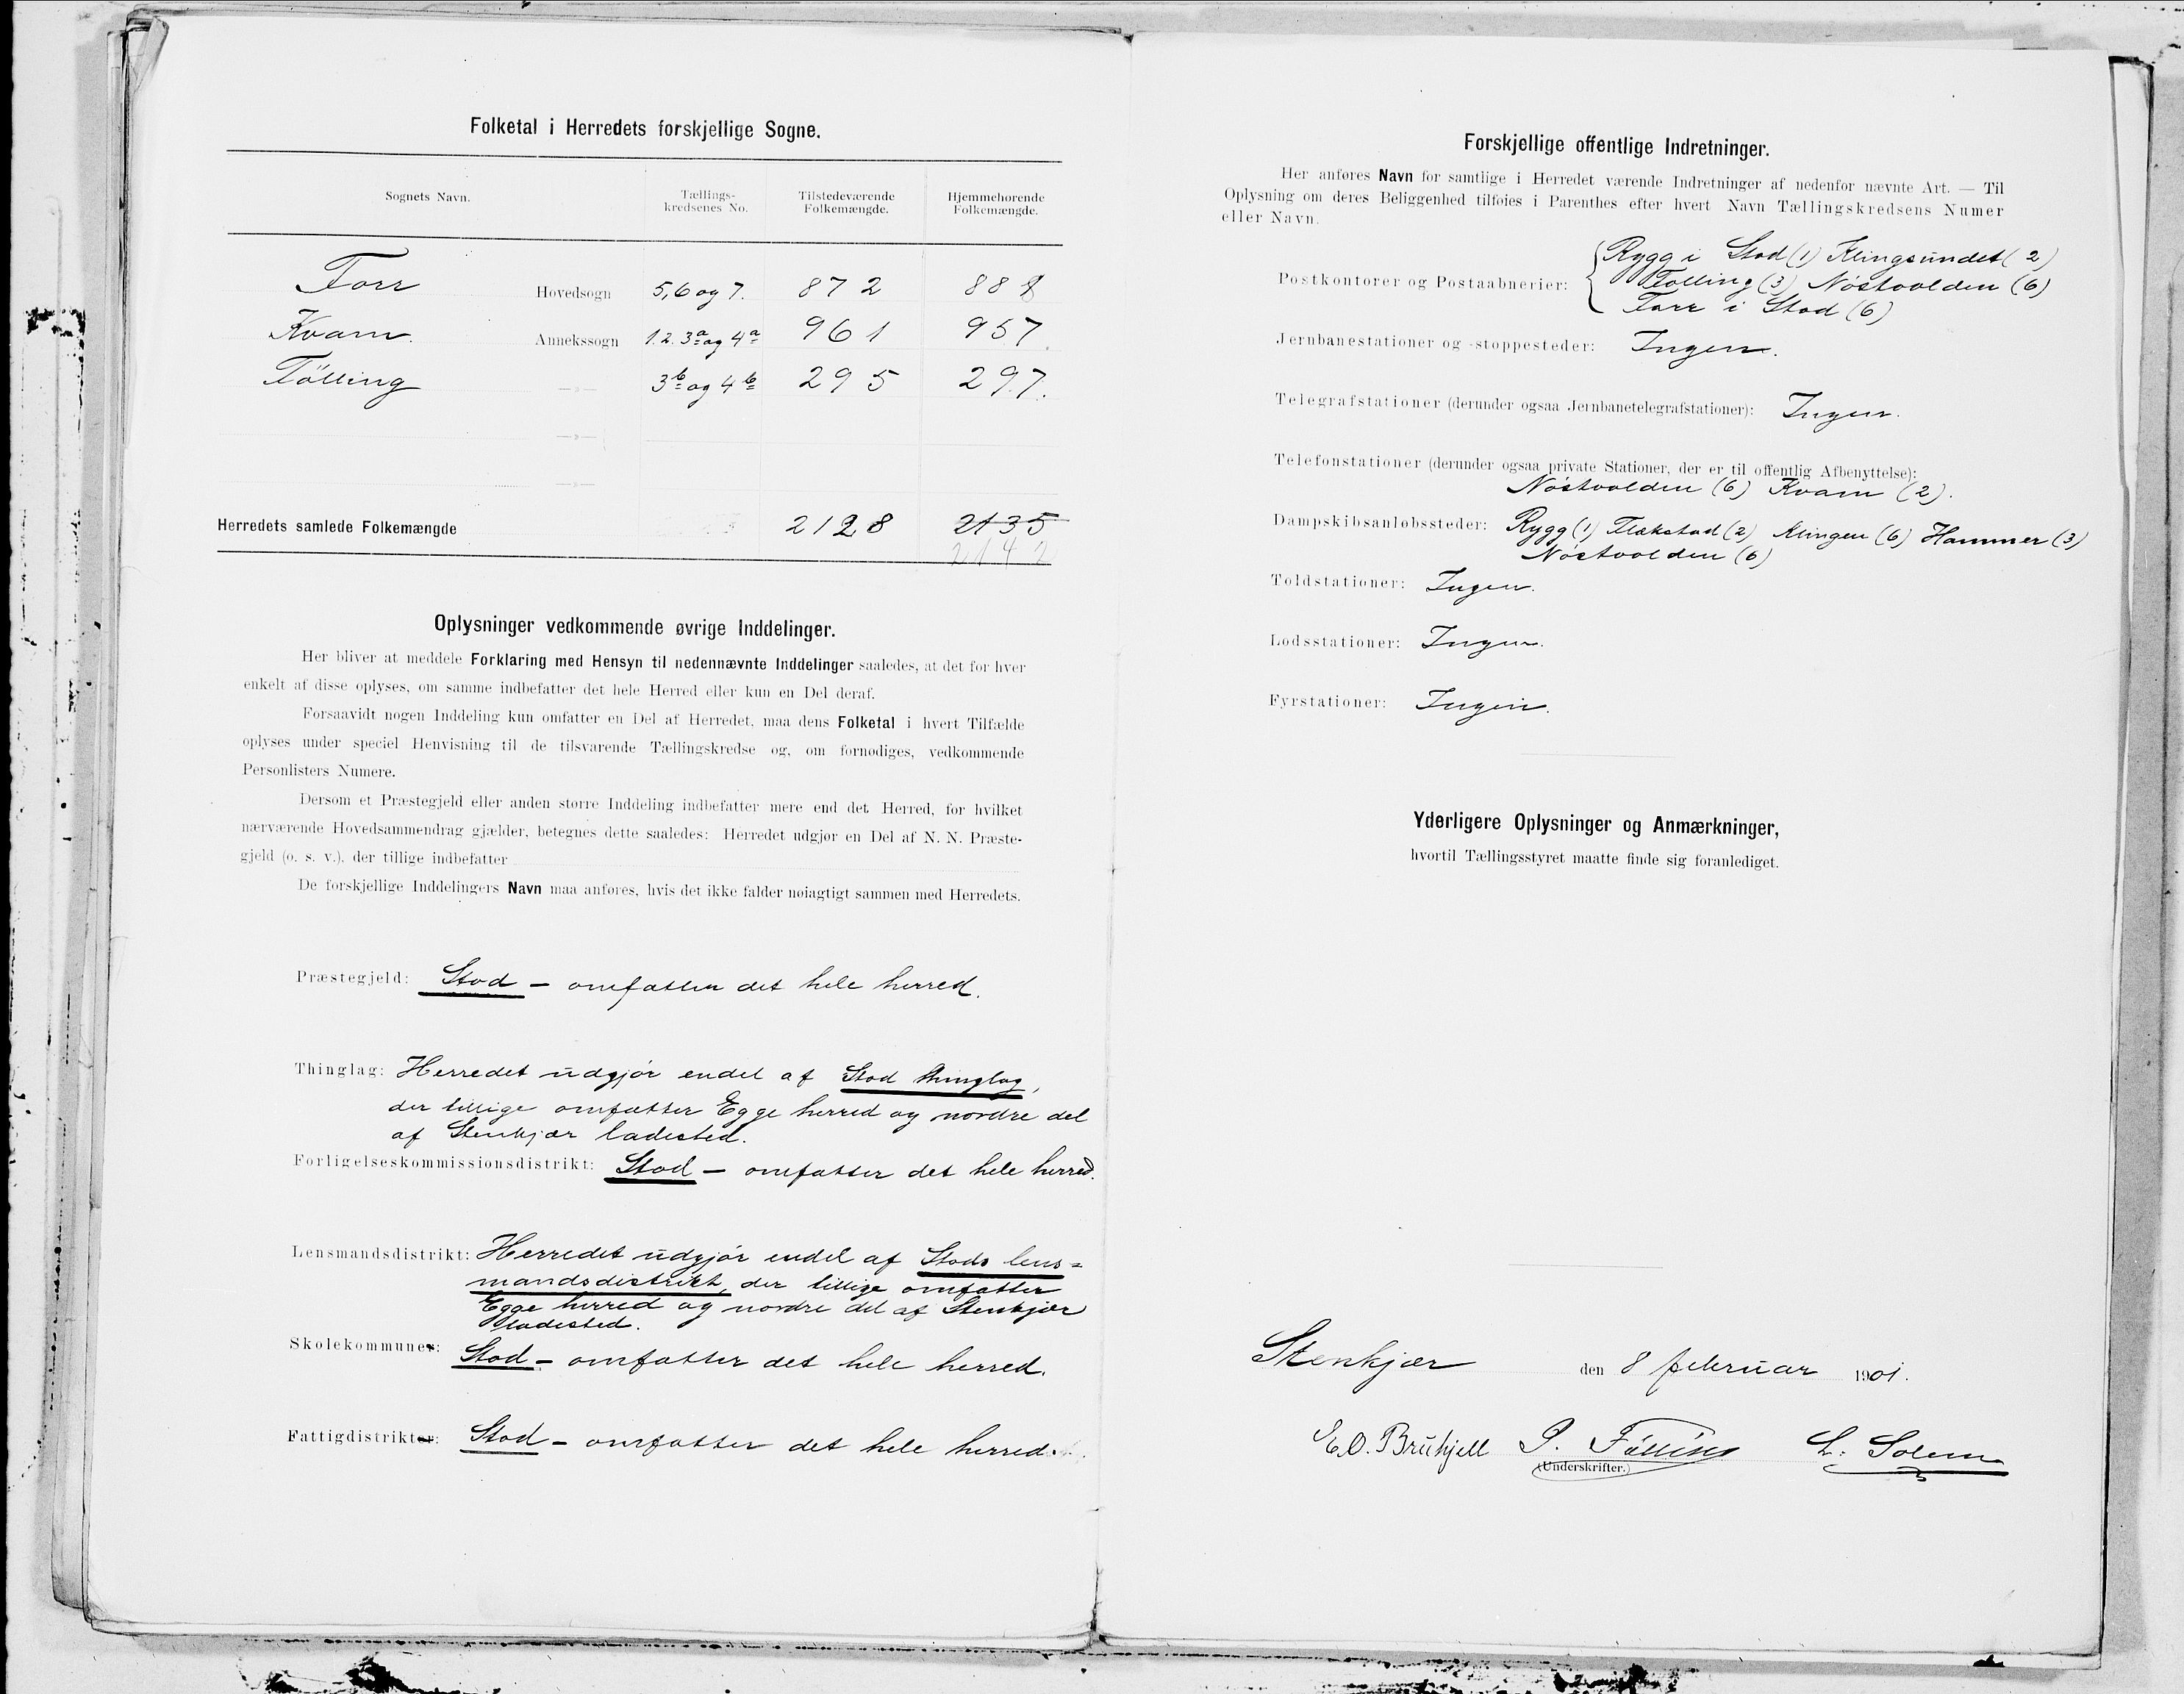 Folketal i Herredets forskjellige Sogne.
Sognets Navn. Tællings-kredsenes No. Tilstedeværende Folkemængde. Hjemmehørende Folkemængde.
For Hovedsogn 5, 6 og 7. 872 888
Kvam. Annekssogn 1. 2. 3a og 4a 961 957.
Følling —»— 3b og 4b 295 297.
—»—
—»—
Herredets samlede Folkemængde 2128 2135
2142
Oplysninger vedkommende øvrige Inddelinger.
Her bliver at meddele Forklaring med Hensyn til nedennævnte Inddelinger saaledes, at det for hver
enkelt af disse oplyses, om samme indbefatter det hele Herred eller kun en Del deraf.
Forsaavidt nogen Inddeling kun omfatter en Del af Herredet, maa dens Folketal i hvert Tilfælde
oplyses under speciel Henvisning til de tilsvarende Tællingskredse og, om fornødiges, vedkommende
Personlisters Numere.
Dersom et Præstegjeld eller anden større Inddeling indbefatter mere end det Herred, for hvilket
nærværende Hovedsammendrag gjælder, betegnes dette saaledes: Herredet udgjør en Del af N. N. Præste-
gjeld (o. s. v.), der tillige indbefatter
De forskjellige Inddelingers Navn maa anføres, hvis det ikke falder nøiagtigt sammen med Herredets.
Præstegjeld: Stod – omfatter det hele herred.
Thinglag: Herredet udgjør endel af Stod thinglag,
der tillige omfatter Egge herred og nordre del
af Stenkjær ladested.
Forligelseskommissionsdistrikt: Stod – omfatter det hele herred.
Lensmandsdistrikt: Herredet udgjør endel af Stods lens=
mandsdistrikt, der tillige omfatter
Egge herred og nordre del af Stenkjær
ladested.
Skolekommuner: Stod – omfatter det hele herred.
Fattigdistrikter: Stod – omfatter det hele herred.
Forskjellige offentlige Indretninger.
Her anføres Navn for samtlige i Herredet værende Indretninger af nedenfor nævnte Art. — Til
Oplysning om deres Beliggenhed tilføies i Parenthes efter hvert Navn Tællingskredsens Numer
eller Navn.
Rygg i Stod (1) Klingsundet (2)
Postkontorer og Postaabnerier: Følling (3) Nøstvolden (6)
For i Stod (6)
Jernbanestationer og -stoppesteder: Ingen.
Telegrafstationer (derunder ogsaa Jernbanetelegrafstationer): Ingen.
Telefonstationer (derunder ogsaa private Stationer, der er til offentlig Afbenyttelse):
Nøstvolden (6) Kvam (2).
Dampskibsanløbssteder: Rygg (1) Flekstad (2) Klingen (6) Hammer (3)
Nøstvolden (6)
Toldstationer: Ingen.
Lodsstationer: Ingen.
Fyrstationer: Ingen.
Yderligere Oplysninger og Anmærkninger,
hvortil Tællingsstyret maatte finde sig foranlediget.
Stenkjær den 8 februar 1901.
E. O. Bruhjell P. Følling L. Solem
(Underskrifter.)